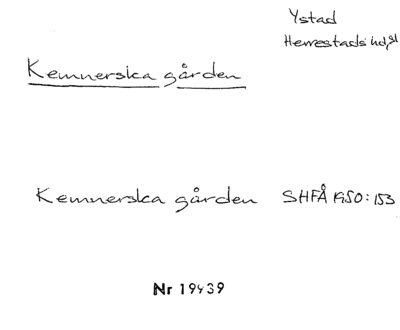 Ystad
Herrestads hd
Kemnerska gården
Kemnerska gården SHFÅ 1950:153
Nr 19939